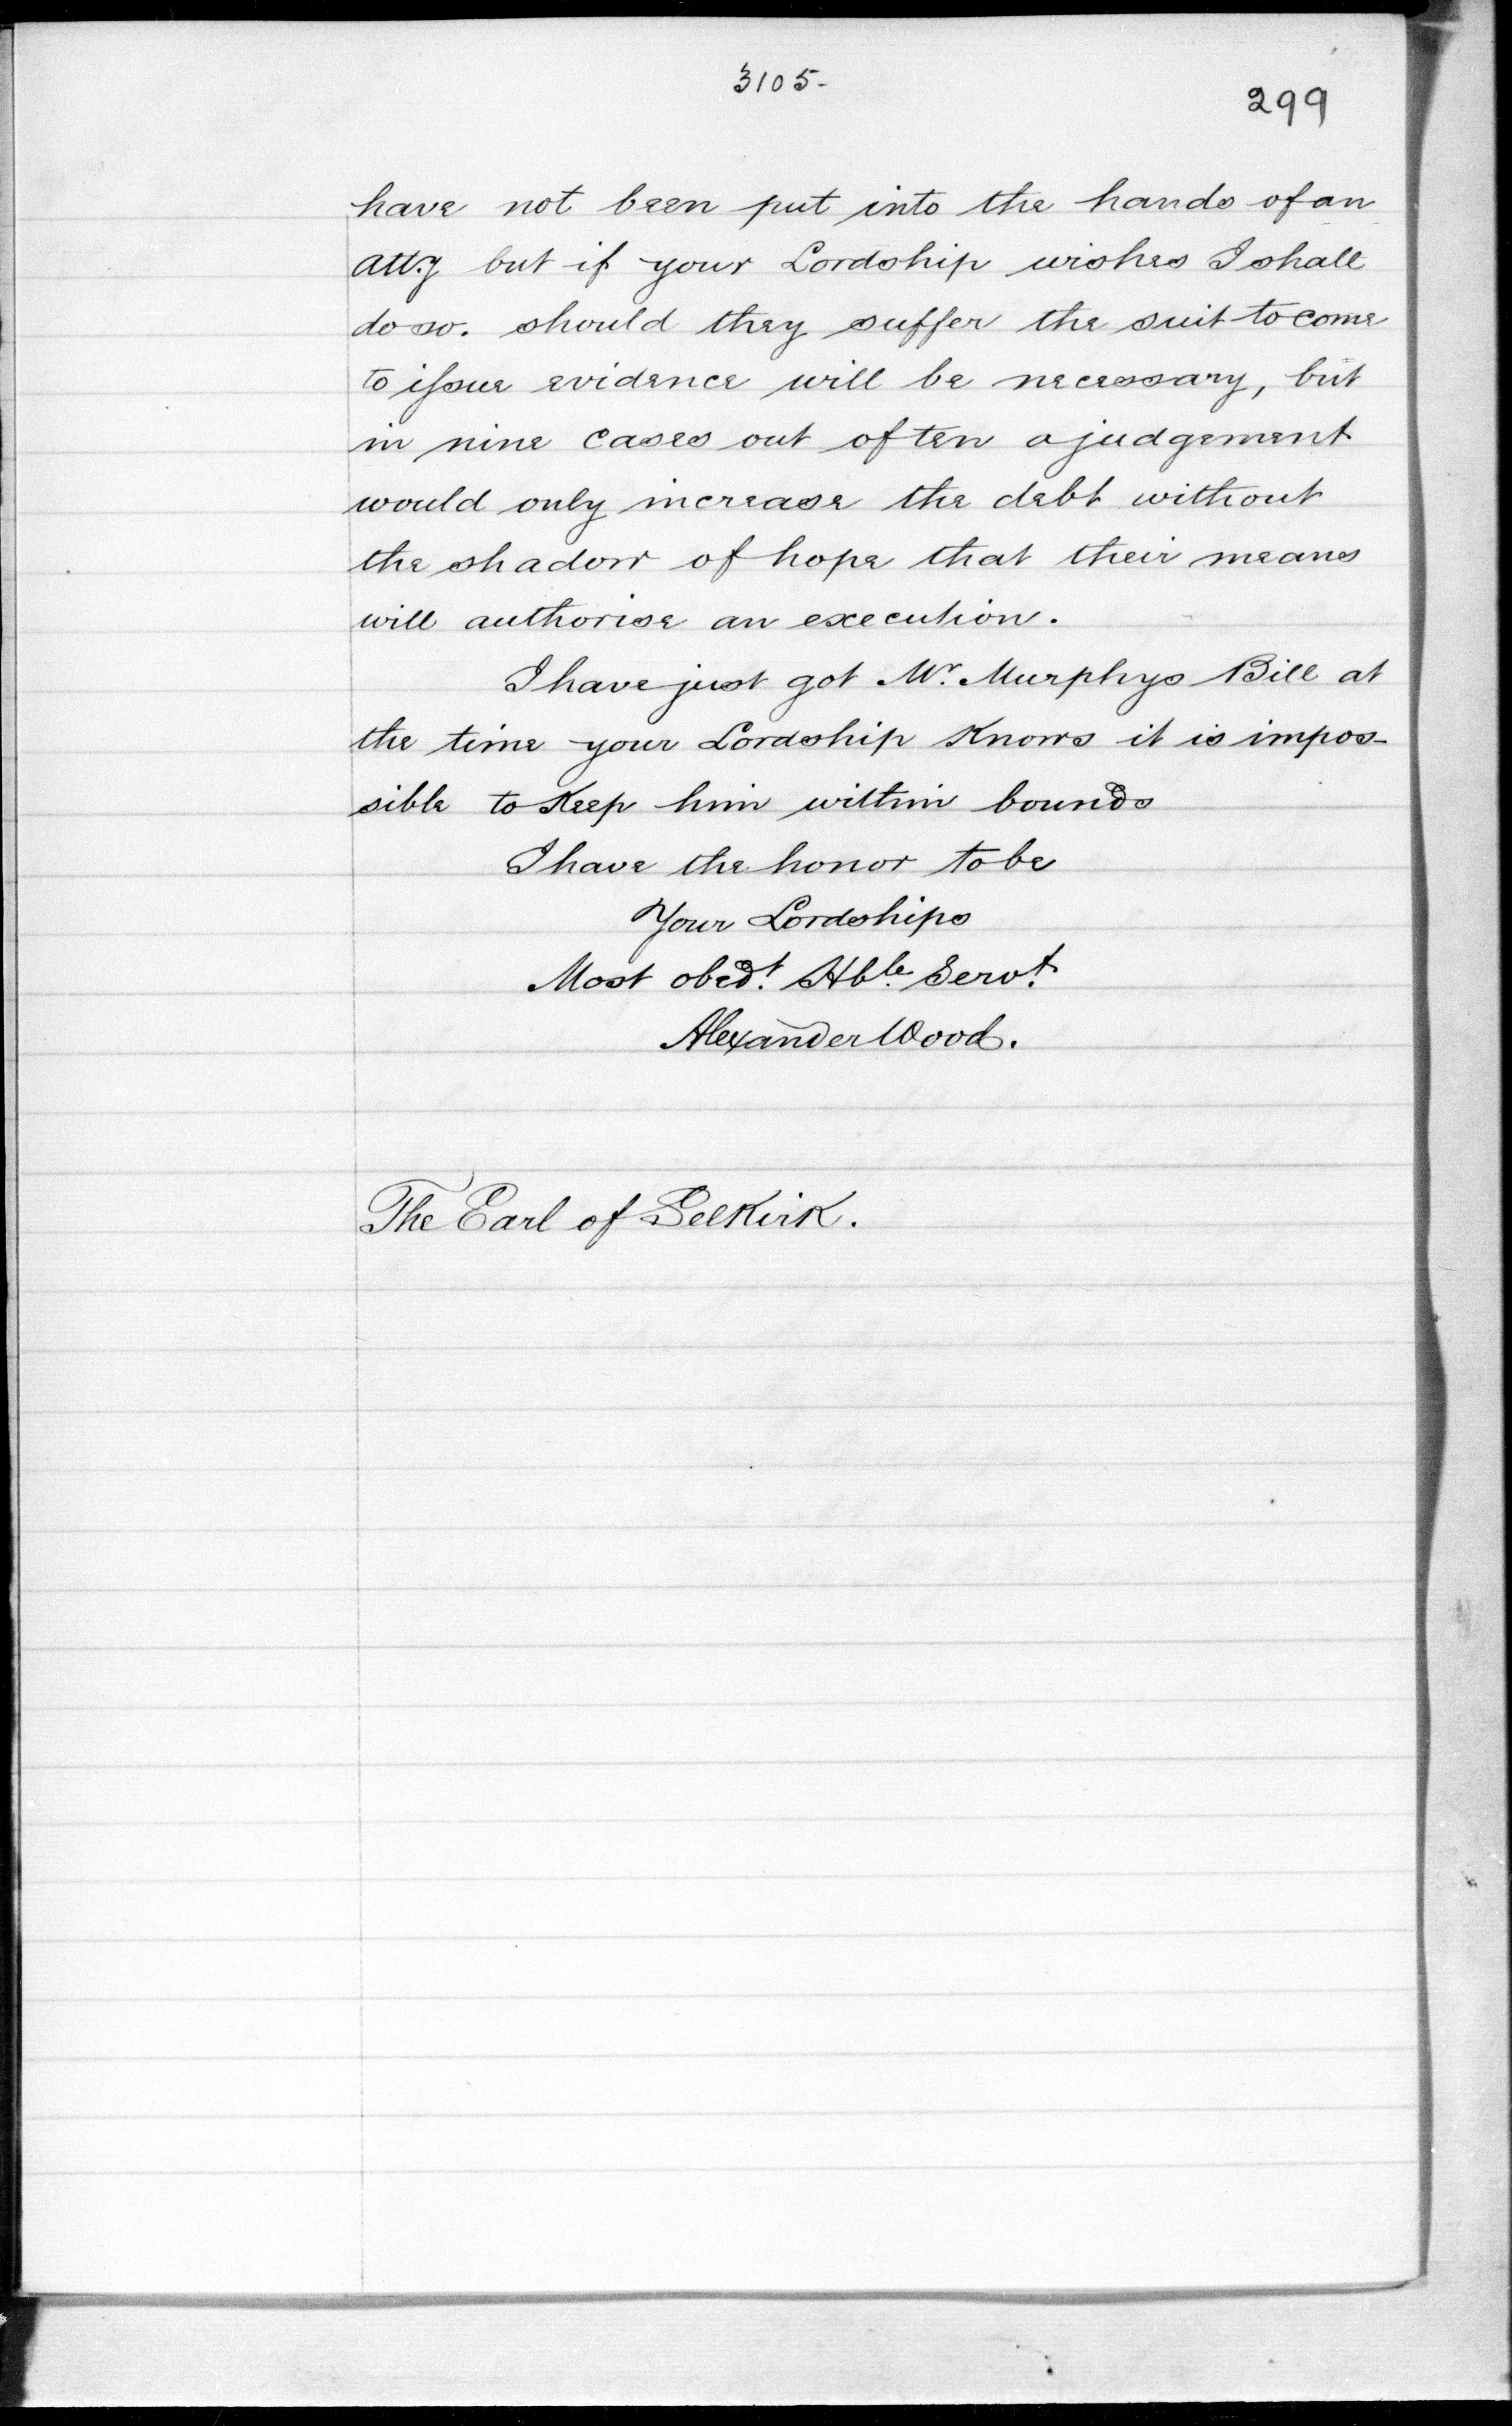 3105-
299
have not been put into the hands of an
atty but if your Lordship wishes I shall
do so. should they suffer the suit to come
to issue evidence will be necessary, but
in nine cases out of ten a judgement
would only increase the debt without
the shadow of hope that their means
will authorise an execution.
I have just got Mr. Murphys Bill at
the time your Lordship Knows it is impos-
sible to Keep him within bounds
I have the honor to be
Your Lordships
Most obedt. Hble. Servt.
Alexander Wood.
The Earl of Selkirk.